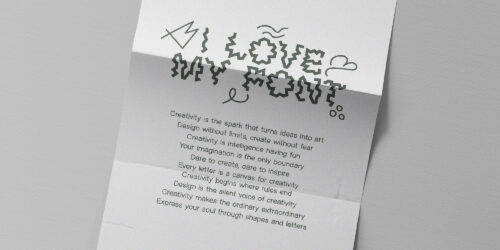 I LOVE
MY FONT
Creativity is the spark that turns ideas into art
Design without limits, create without fear
Creativity is intelligence having fun
Your imagination is the only boundary
Dare to create, dare to inspire
Every letter is a canvas for creativity
Creativity begins where rules end
Design is the silent voice of creativity
Creativity makes the ordinary extraordinary
Express your soul through shapes and letters